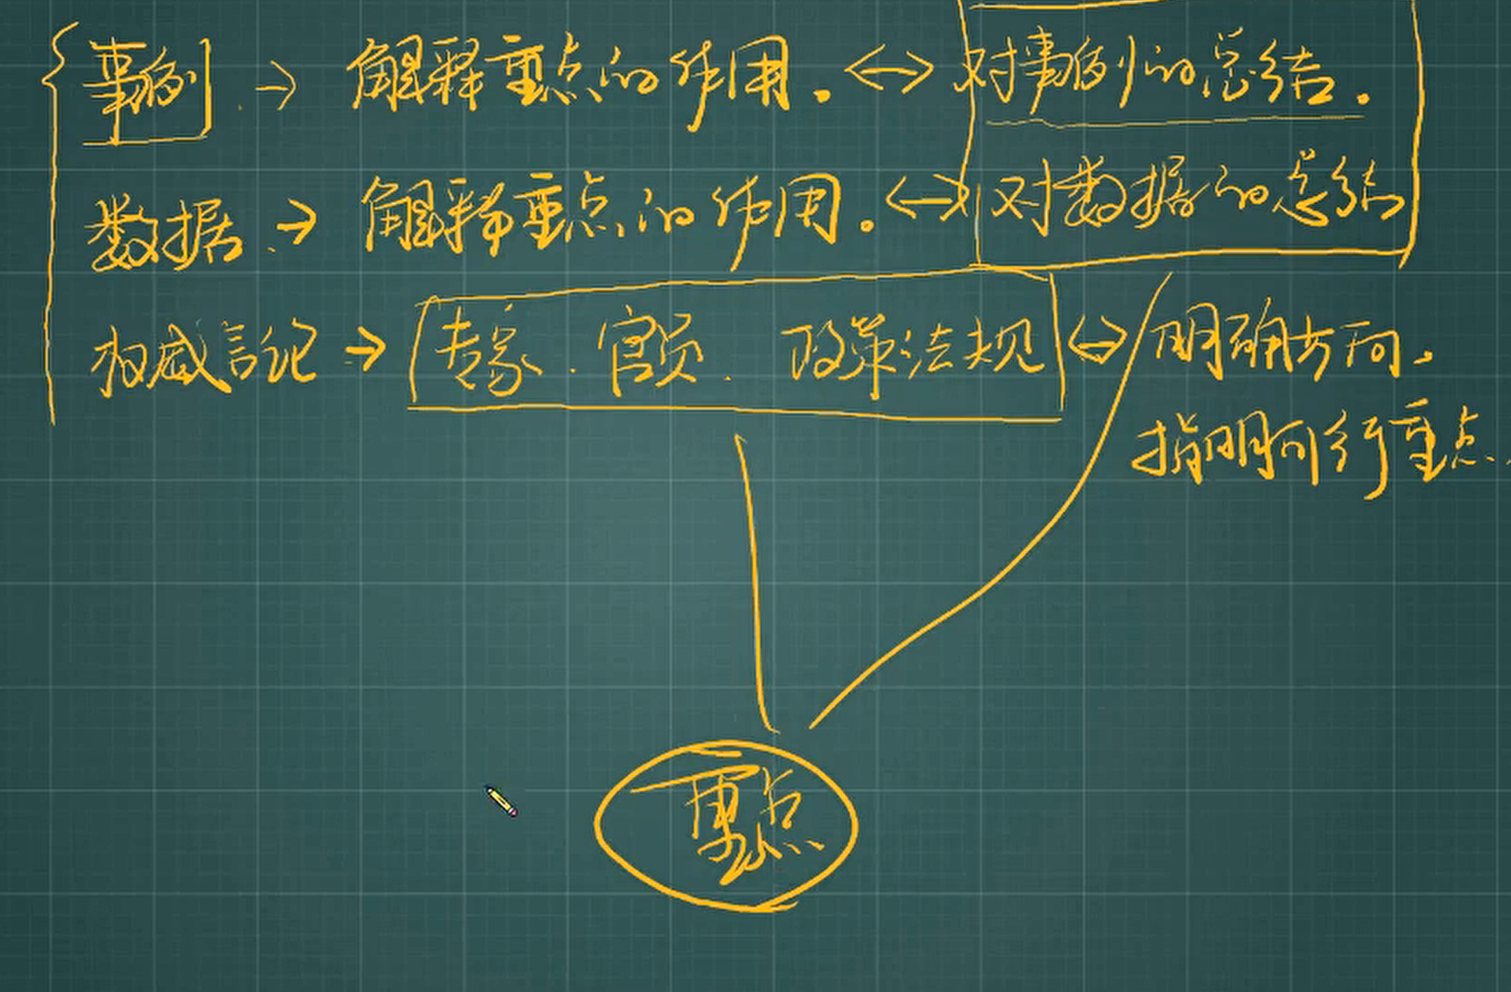 事例 → 解释重点的作用. ↔ 对事例的总结.
数据 → 解释重点的作用. ↔ 对数据的总结
权威言论 → 专家. 官员. 政策法规 ↔ 明确方向.
指明何行重点.
重点